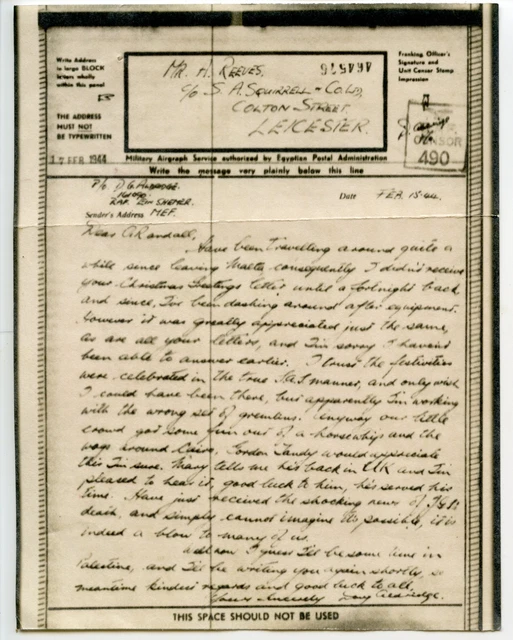 Write Address
in large BLOCK
letters wholly
within this panel
THE ADDRESS
MUST NOT
BE TYPEWRITTEN
17 FEB 1944
MR. H. REEVES.
C/o S. A. SQUIRRELL & Co. LTD,
COLTON STREET,
LEICESTER.
464576
Franking Officer's
Signature and
Unit Censor Stamp
Impression
CENSOR
490
Military Airgraph Service authorized by Egyptian Postal Administration
Write the message very plainly below this line
D. G. ALDRIDGE.
RAF. EIN SHEMER.
Sender's Address MEF.
Date FEB. 15. 44.
Dear Randall,
Have been travelling around quite a
while since leaving Malta, consequently I didn't receive
your Christmas Greetings letter until a fortnight back
and since, I've been dashing around after equipment.
However it was greatly appreciated just the same,
as are all your letters, and I'm sorry I haven't
been able to answer earlier. I trust the festivities
were celebrated in the true manner, and only wish
I could have been there, but apparently I'm working
with the wrong set of gremlins. Anyway our little
crowd got some fun out of a horsewhip and the
wogs around Cairo. Gordon Tandy would appreciate
this I'm sure. Mary tells me he's back in U.K and I'm
pleased to hear it, good luck to him, he's served his
time. Have just received the shocking news of
death, and simply cannot imagine it's possible, it is
indeed a blow to many of us.
Well now I guess I'll be some time in
Palestine, and I'll be writing you again shortly, so
meantime kindest regards and good luck to all,
Yours sincerely Doug Aldridge.
THIS SPACE SHOULD NOT BE USED